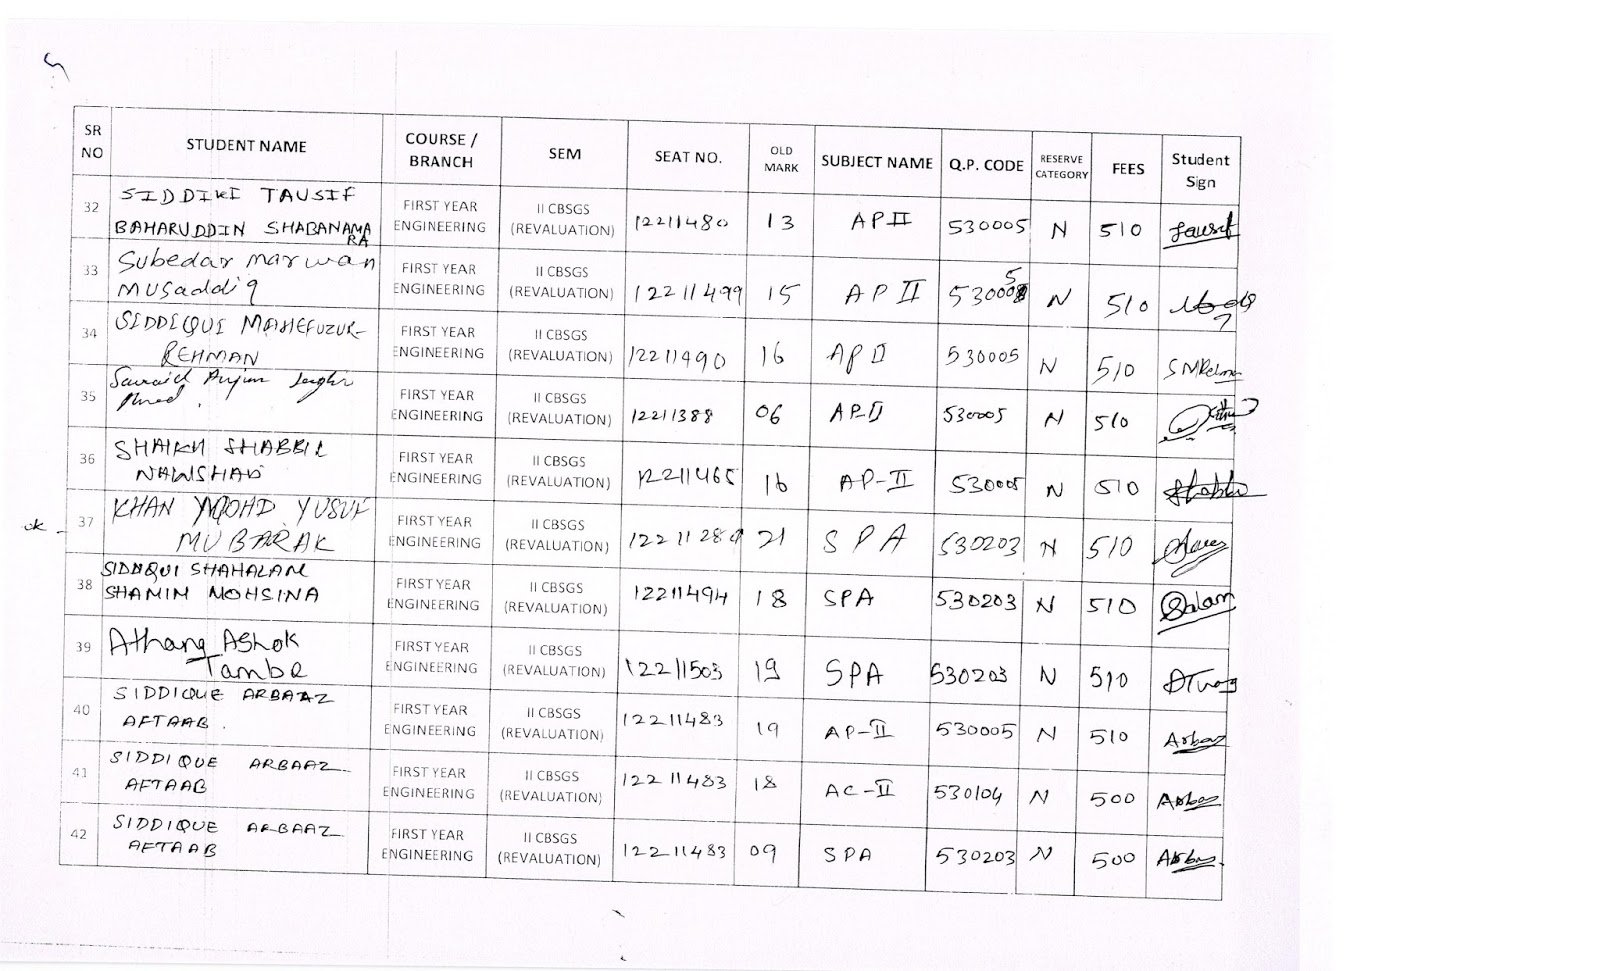 SR NO STUDENT NAME COURSE / BRANCH SEM SEAT NO. OLD MARK SUBJECT NAME Q.P. CODE RESERVE CATEGORY FEES Student Sign
32 SIDDIKI TAUSIF BAHARUDDIN SHABANAMARA FIRST YEAR ENGINEERING II CBSGS (REVALUATION) 12211480 13 AP II 530005 N 510 Tausif
33 Subedar marwan Musaddiq FIRST YEAR ENGINEERING II CBSGS (REVALUATION) 12211499 15 AP II 530005 N 510
34 SIDDIQUI MAHEFUZUR- REHMAN FIRST YEAR ENGINEERING II CBSGS (REVALUATION) 12211490 16 AP II 530005 N 510
35 FIRST YEAR ENGINEERING II CBSGS (REVALUATION) 12211388 06 AP-II 530005 N 510
36 SHAIKH SHABBIR NAWSHAD FIRST YEAR ENGINEERING II CBSGS (REVALUATION) 12211465 16 AP-II 530005 N 510
ok - 37 KHAN MOHD YUSUF MUBARAK FIRST YEAR ENGINEERING II CBSGS (REVALUATION) 21 SPA 530203 N 510
38 SIDDIQUI SHAHALAM SHAMIM MOHSINA FIRST YEAR ENGINEERING II CBSGS (REVALUATION) 12211494 18 SPA 530203 N 510 Salam
39 Athang Ashok Tambe FIRST YEAR ENGINEERING II CBSGS (REVALUATION) 12211503 19 SPA 530203 N 510
40 SIDDIQUE ARBAAZ AFTAAB. FIRST YEAR ENGINEERING II CBSGS (REVALUATION) 12211483 19 AP-II 530005 N 510 Arbaz
41 SIDDIQUE ARBAAZ AFTAAB FIRST YEAR ENGINEERING II CBSGS (REVALUATION) 12211483 18 AC-II 530104 N 500 Arbaz
42 SIDDIQUE ARBAAZ AFTAAB FIRST YEAR ENGINEERING II CBSGS (REVALUATION) 12211483 09 SPA 530203 N 500